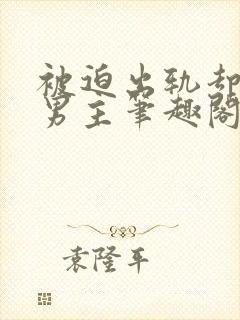 被迫出轨却
男主笔趣阁
袁隆平